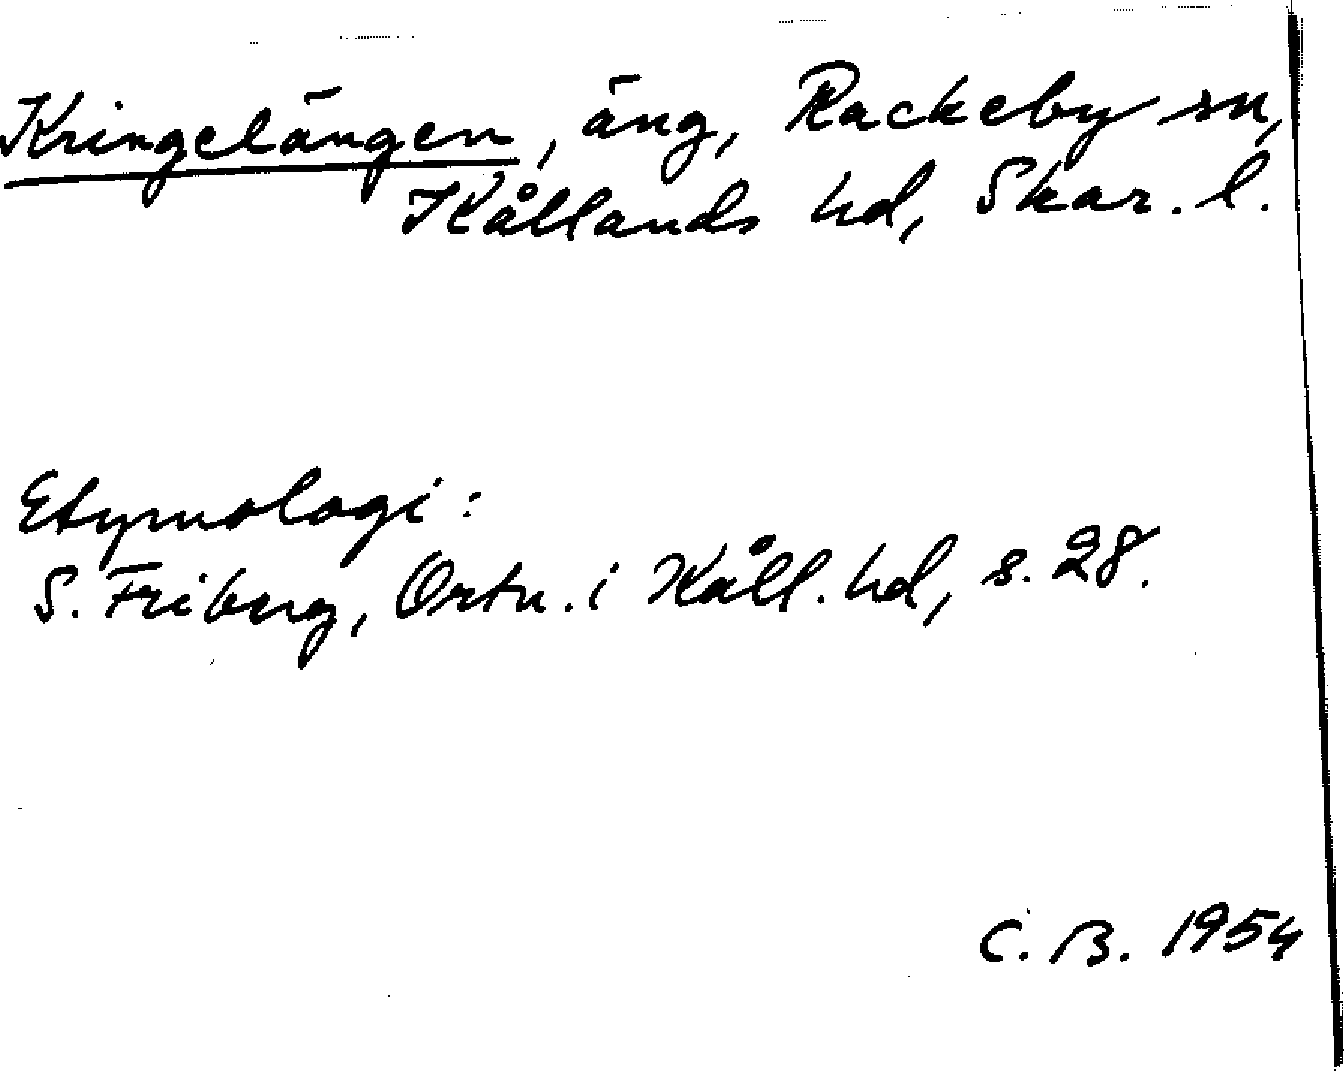 Kringelängen, äng, Rackeby sn,
Kållands hd, Skar. l.
Etymologi:
S. Friberg, Ortn. i Kåll. hd, s. 28.
C. B. 1954